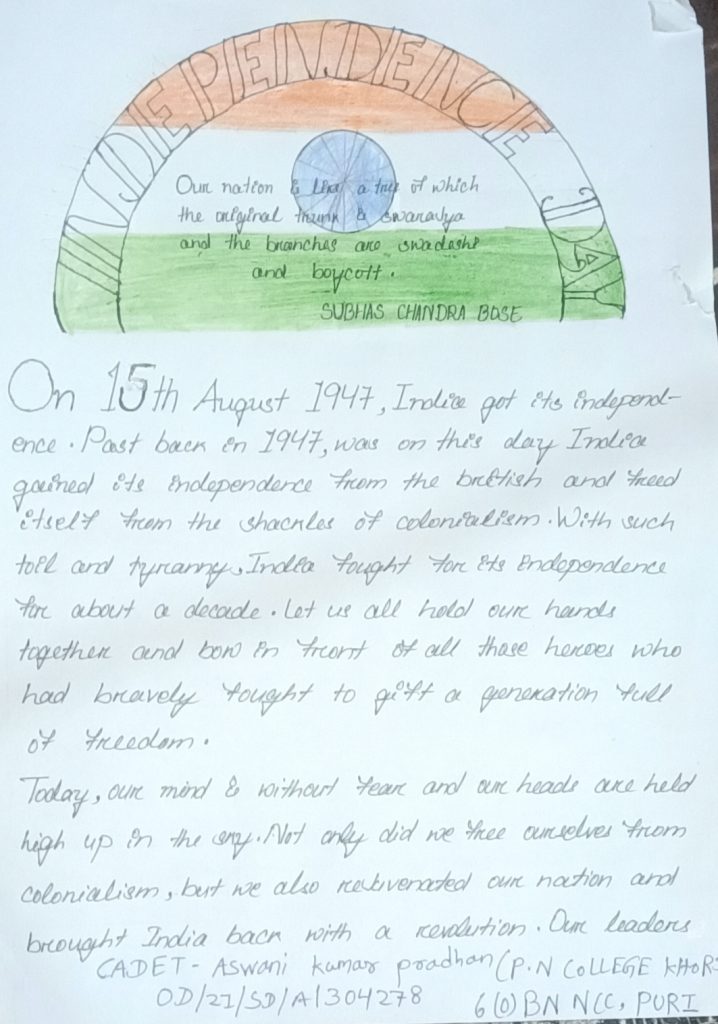 INDEPENDENCE DAY
Our nation is like a tree of which
the original trunk is swarajya
and the branches are swadeshi
and boycott.
SUBHAS CHANDRA BOSE
On 15th August 1947, India got its independ-
ence. Past back in 1947, was on this day India
gained its independence from the british and freed
itself from the shackles of colonialism. With such
toil and tyranny, India fought for its independence
for about a decade. Let us all hold our hands
together and bow in front of all those heroes who
had bravely fought to gift a generation full
of freedom.
Today, our mind is without fear and our heads are held
high up in the sky. Not only did we free ourselves from
colonialism, but we also rejuvenated our nation and
brought India back with a revolution. Our leaders
CADET- Aswani kumar pradhan (P.N COLLEGE KHOR
OD/21/SD/A/304278 6(O) BN NCC, PURI